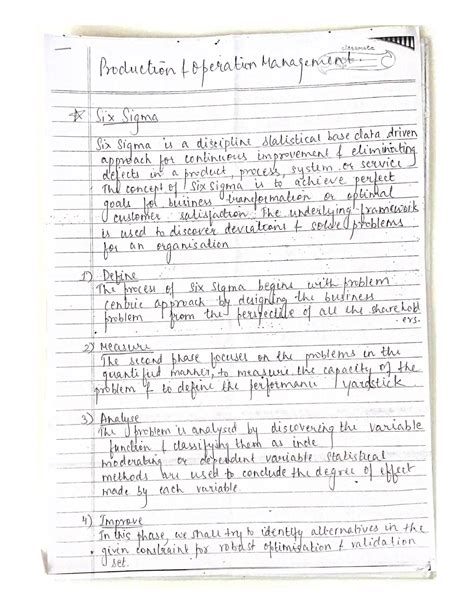 classmate
Production & Operation Management.
Six Sigma
Six Sigma is a discipline statistical base data driven
approach for continuous improvement & eliminating
defects in a product, process, system or service
The concept of Six Sigma is to achieve perfect
goals for business transformation or optimal
customer satisfaction. The underlying framework
is used to discover deviations & solve problems
for an organisation
1) Define
The process of six sigma begins with problem
centric approach by designing the business
problem from the perspective of all the share hold
ers.
2) Measure
The second phase focuses on the problems in the
quantified manner, to measure the capacity of the
problem & to define the performance yardstick
3) Analyse
The problem is analysed by discovering the variable
function & classifying them as inde
moderating or dependent variable statistical
methods are used to conclude the degree of effect
made by each variable.
4) Improve
In this phase, we shall try to identify alternatives in the
given constraint for robust optimisation & validation
set.